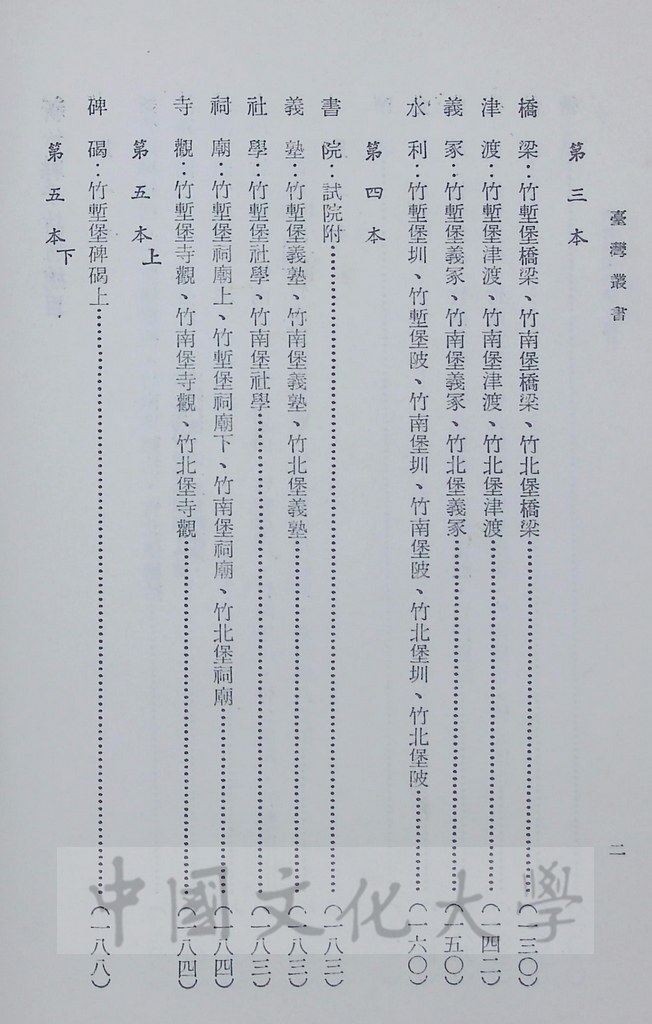 臺灣叢書
二
第三本
橋梁：竹塹堡橋梁、竹南堡橋梁、竹北堡橋梁……（一三〇）
津渡：竹塹堡津渡、竹南堡津渡、竹北堡津渡……（一四二）
義冢：竹塹堡義冢、竹南堡義冢、竹北堡義冢……（一五〇）
水利：竹塹堡圳、竹塹堡陂、竹南堡圳、竹南堡陂、竹北堡圳、竹北堡陂……（一六〇）
第四本
書院：試院附……（一八三）
義塾：竹塹堡義塾、竹南堡義塾、竹北堡義塾……（一八三）
社學：竹塹堡社學、竹南堡社學……（一八三）
祠廟：竹塹堡祠廟上、竹塹堡祠廟下、竹南堡祠廟、竹北堡祠廟……（一八四）
寺觀：竹塹堡寺觀、竹南堡寺觀、竹北堡寺觀……（一八四）
第五本上
碑碣：竹塹堡碑碣上……（一八八）
第五本下
中國文化大學